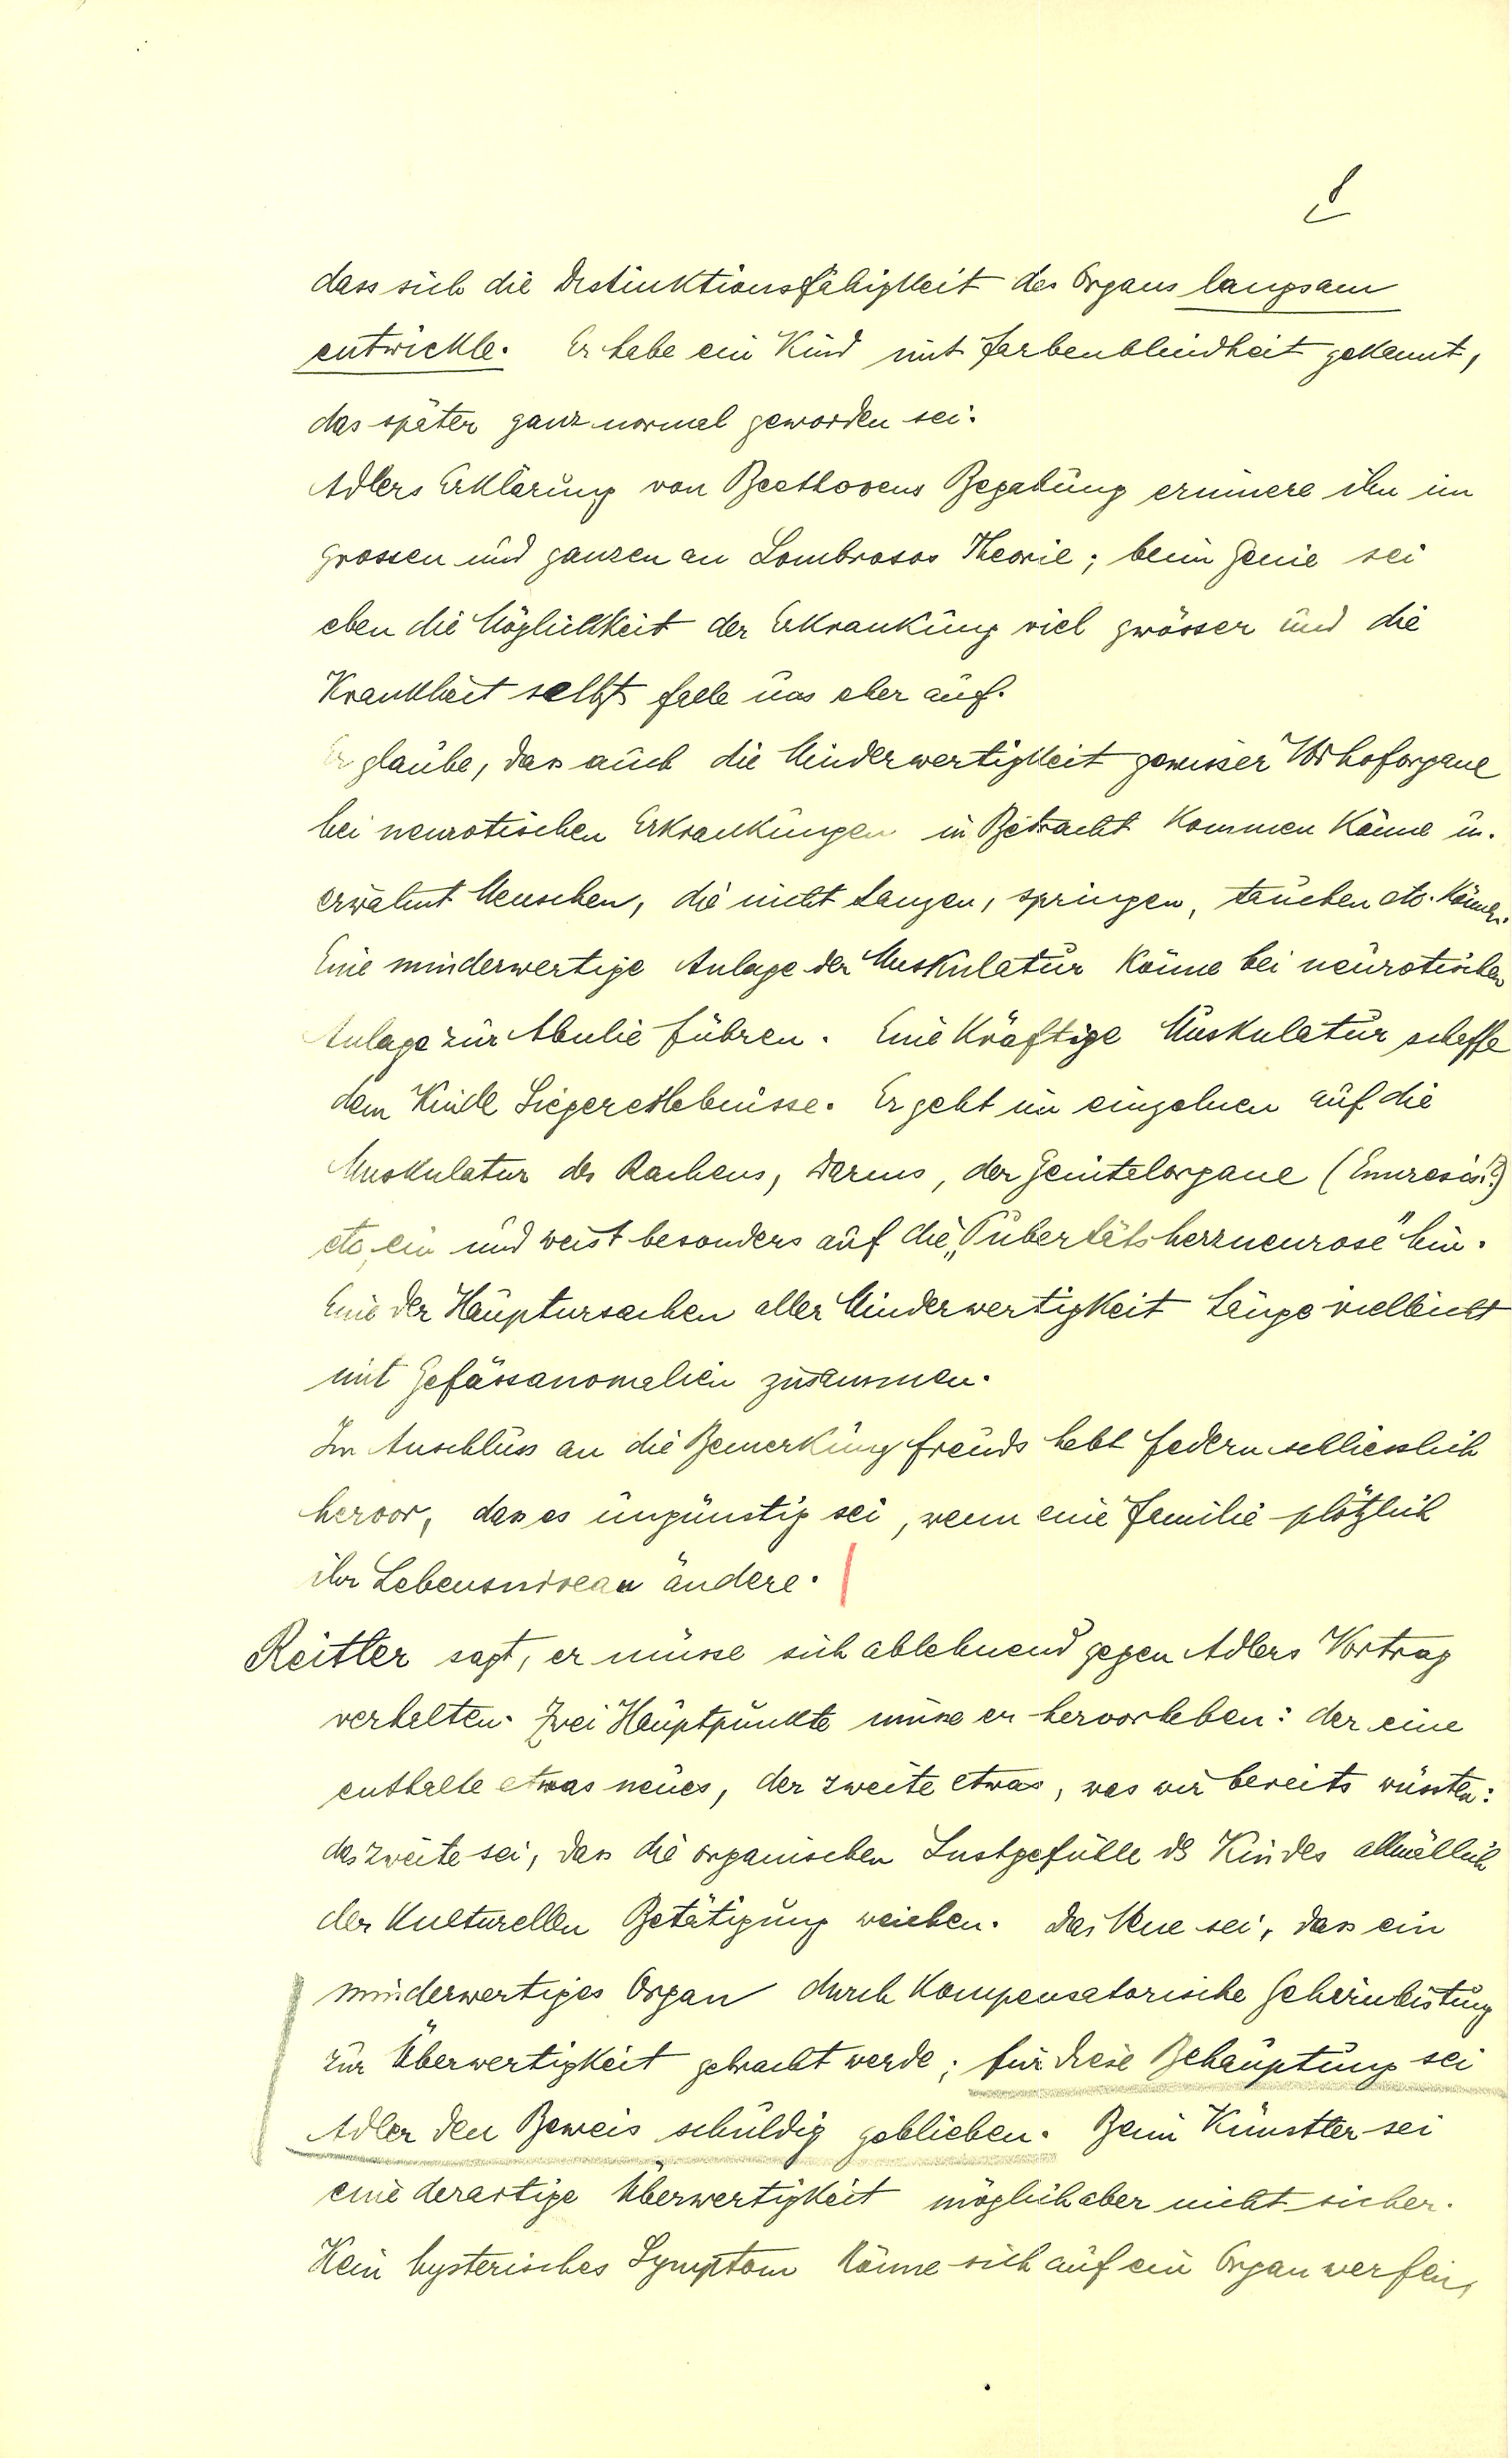 8
dass sich die Distinktionsfähigkeit des Organs langsam
entwickle. Er habe ein Kind mit Farbenblindheit gekannt,
das später ganz normal geworden sei.
Adlers Erklärung von Beethovens Begabung erinnere ihn im
grossen und ganzen an Lombrosos Theorie; beim Genie sei
eben die Möglichkeit der Erkrankung viel grösser und die
Krankheit selbst falle uns eher auf.
Er glaube, dass auch die Minderwertigkeit gewisser Vorhoforgane
bei neurotischen Erkrankungen in Betracht kommen könne u.
erwähnt Menschen, die nicht tanzen, springen, tauchen etc. können.
Eine minderwertige Anlage der Muskulatur könne bei neurotischen
Anlage zur Abulie führen. Eine kräftige Muskulatur schaffe
dem Kinde Siegererlebnisse. Er geht im einzelnen auf die
Muskulatur des Rachens, Darms, der Genitalorgane (Enuresis!?)
etc ein und weist besonders auf die „Pubertätsherzneurose" hin.
Eine der Hauptursachen aller Minderwertigkeit hänge vielleicht
mit Gefässanomalien zusammen.
Im Anschluss an die Bemerkung Freuds hebt Federn schliesslich
hervor, dass es ungünstig sei, wenn eine Familie plötzlich
ihr Lebensniveau ändere.
Reitler sagt, er müsse sich ablehnend gegen Adlers Vortrag
verhalten. Zwei Hauptpunkte müsse er hervorheben: der eine
enthalte etwas neues, der zweite etwas, was wir bereits wüssten:
das zweite sei, dass die organischen Lustgefühle des Kindes allmählich
der kulturellen Betätigung weichen. Das Neue sei, dass ein
minderwertiges Organ durch kompensatorische Gehirnleistung
zur Überwertigkeit gebracht werde; für diese Behauptung sei
Adler den Beweis schuldig geblieben. Beim Künstler sei
eine derartige Überwertigkeit möglich aber nicht sicher.
Kein hysterisches Symptom könne sich auf ein Organ werfen,